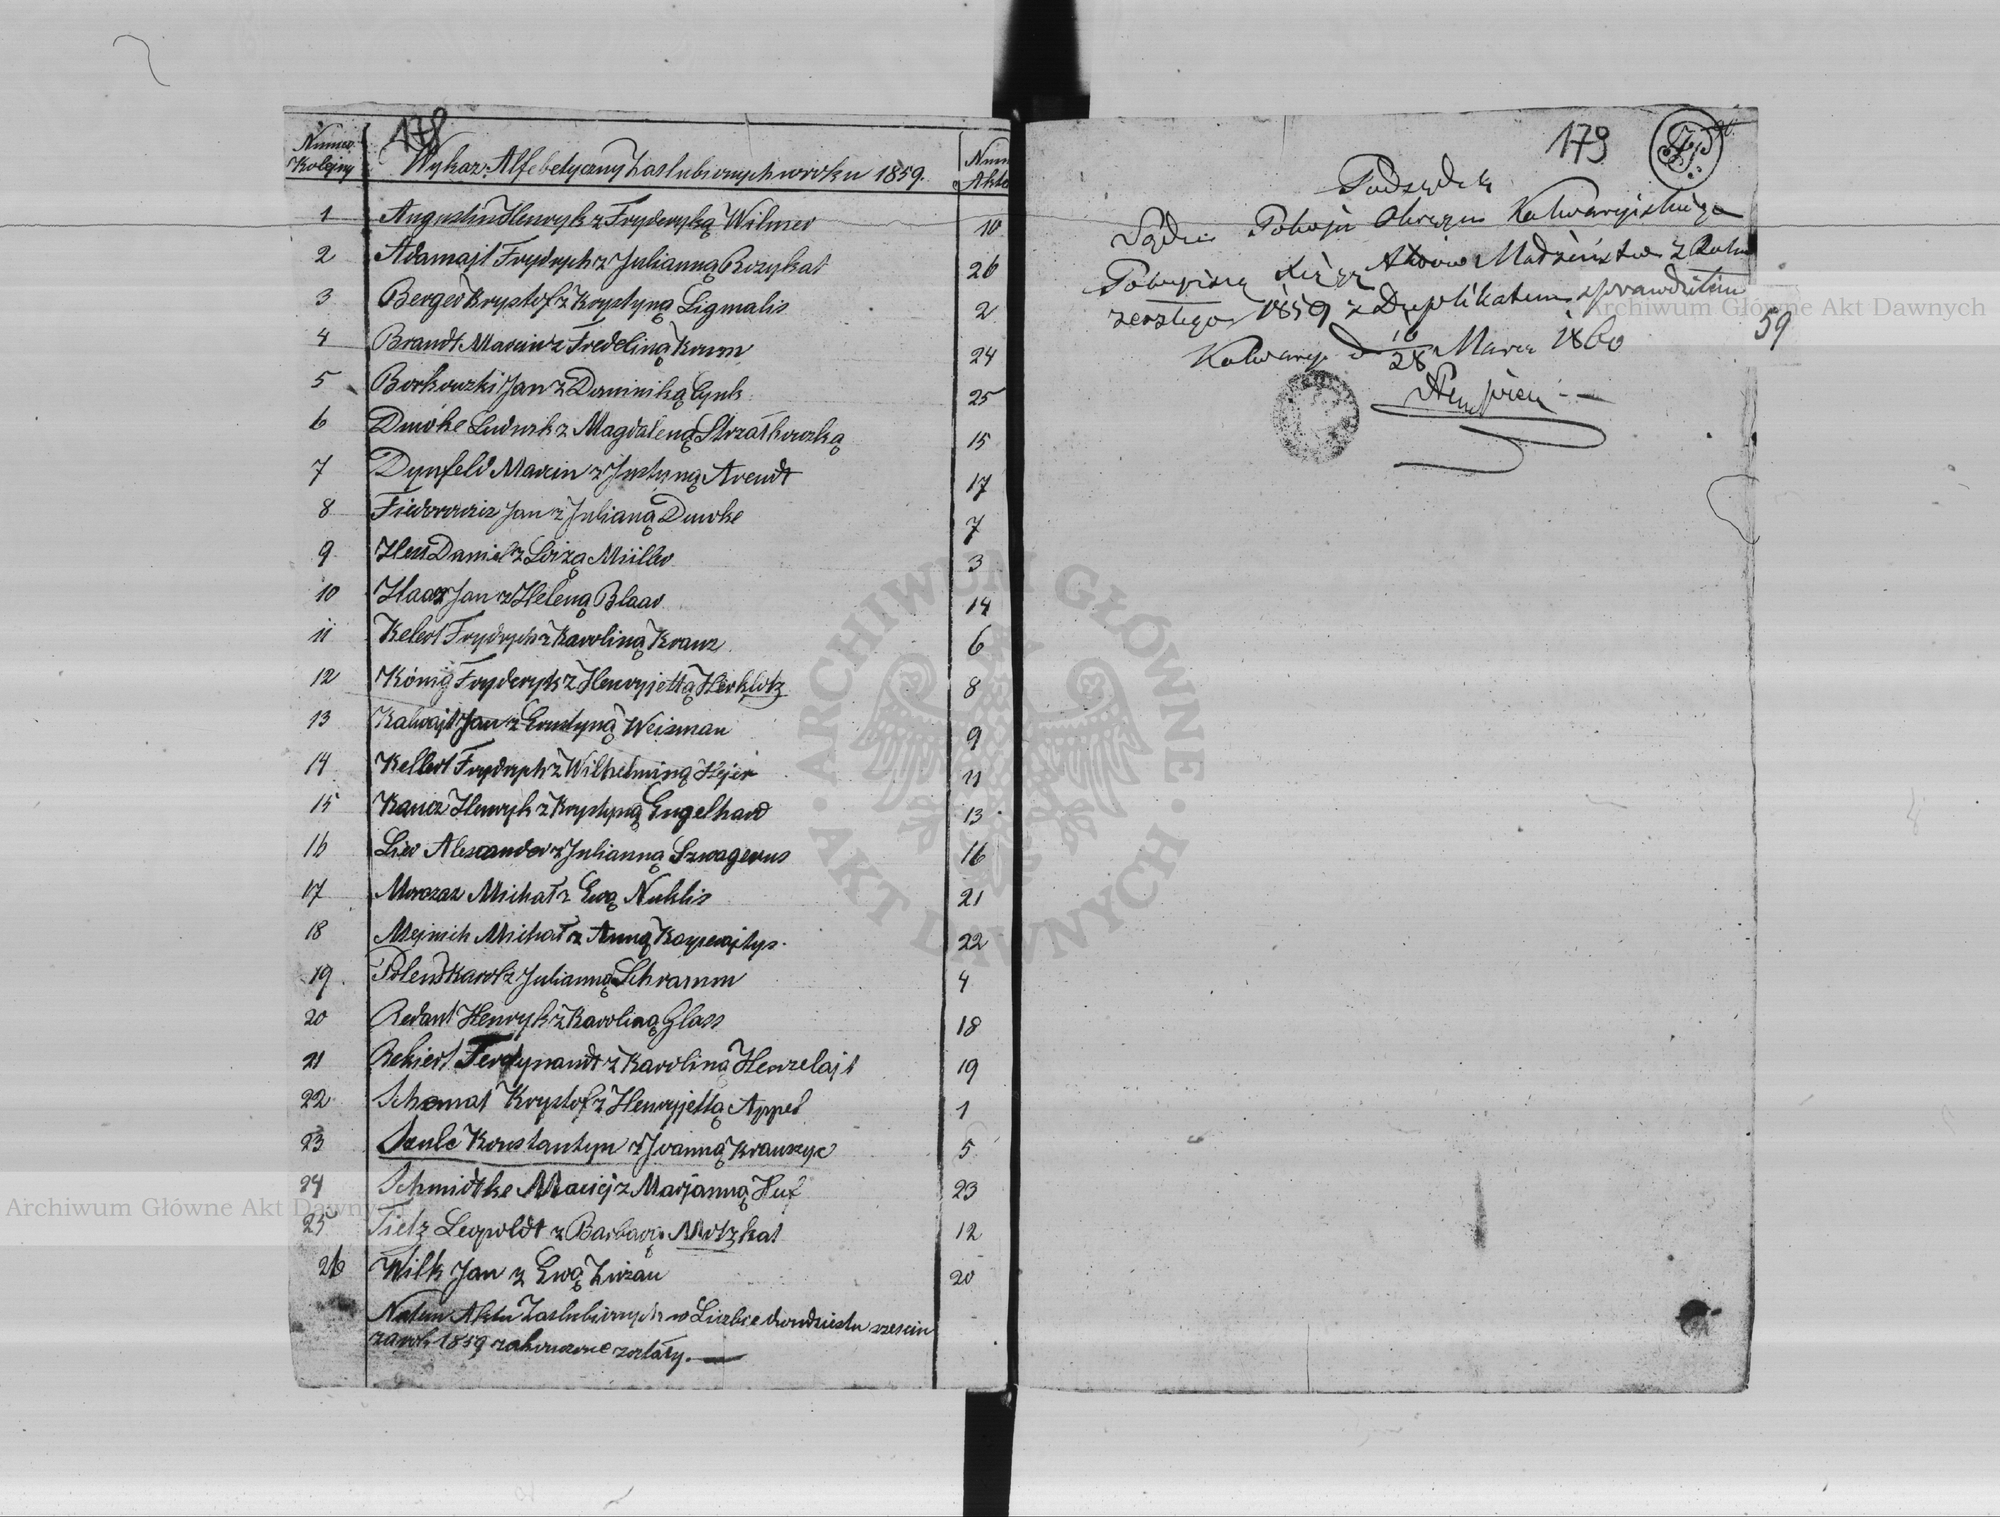 178
Numer Kolejny
Wykaz Alfabetyczny Zaslubionych w roku 1859.
Num Akto
1 Augustin Henryk z Fryderyką Wilmer 10
2 Adamajt Frydrych z Julianną Rozykat 26
3 Berger Krystof z Krystyną Ligmalis 2
4 Brandt Marcin z Fredeliną Krum 24
5 Borkowski Jan z Dominiką Cynk 25
6 Dumke Ludwik z Magdaleną Strzałkowską 15
7 Dynfeld Marcin z Justyną Arendt 17
8 Fiedorowicz Jan z Julianą Dumke 7
9 Hess Daniel z Loizą Müller 3
10 Haaz Jan z Heleną Blaar 14
11 Kelert Frydrych z Karoliną Kranz 6
12 König Fryderyk z Henryjettą Herklotz 8
13 Kalwajt Jan z Ernstyną Weisman 9
14 Kellert Frydrych z Wilhelminą Hejer 11
15 Kancz Henryk z Krystyną Engelhard 13
16 Lier Alexander z Julianną Szwagerus 16
17 Morozas Michał z Ewą Nuklis 21
18 Mejnich Michał z Anną Kasperajtys 22
19 Polen Karol z Julianną Schramm 4
20 Redant Henryk z Karoliną Glass 18
21 Rekiert Ferdynandt z Karoliną Henzelajt 19
22 Schomat Krystof z Henryjettą Appel 1
23 Szulc Konstantyn z Joanną Krauzyc 5
24 Schmidtke Maciej z Marjanną Huf 23
25 Tietz Leopoldt z Barbarą Motzkat 12
26 Wilk Jan z Ewą Zurzan 20
Natem Akta Zaslubionych w Liczbie dwudziestu szesciu
za rok 1859 zakonczone zostały.
179
Podsędek
Sądu Pokoju Okręgu Kalwaryjskiego
Aktów Małżeństw z Roku
1859 z Duplikatem sprawdziłem
59
Kalwarya d 16/28 Marca 1860
Archiwum Główne Akt Dawnych
Archiwum Główne Akt Dawnych
· ARCHIWUM GŁÓWNE · AKT DAWNYCH